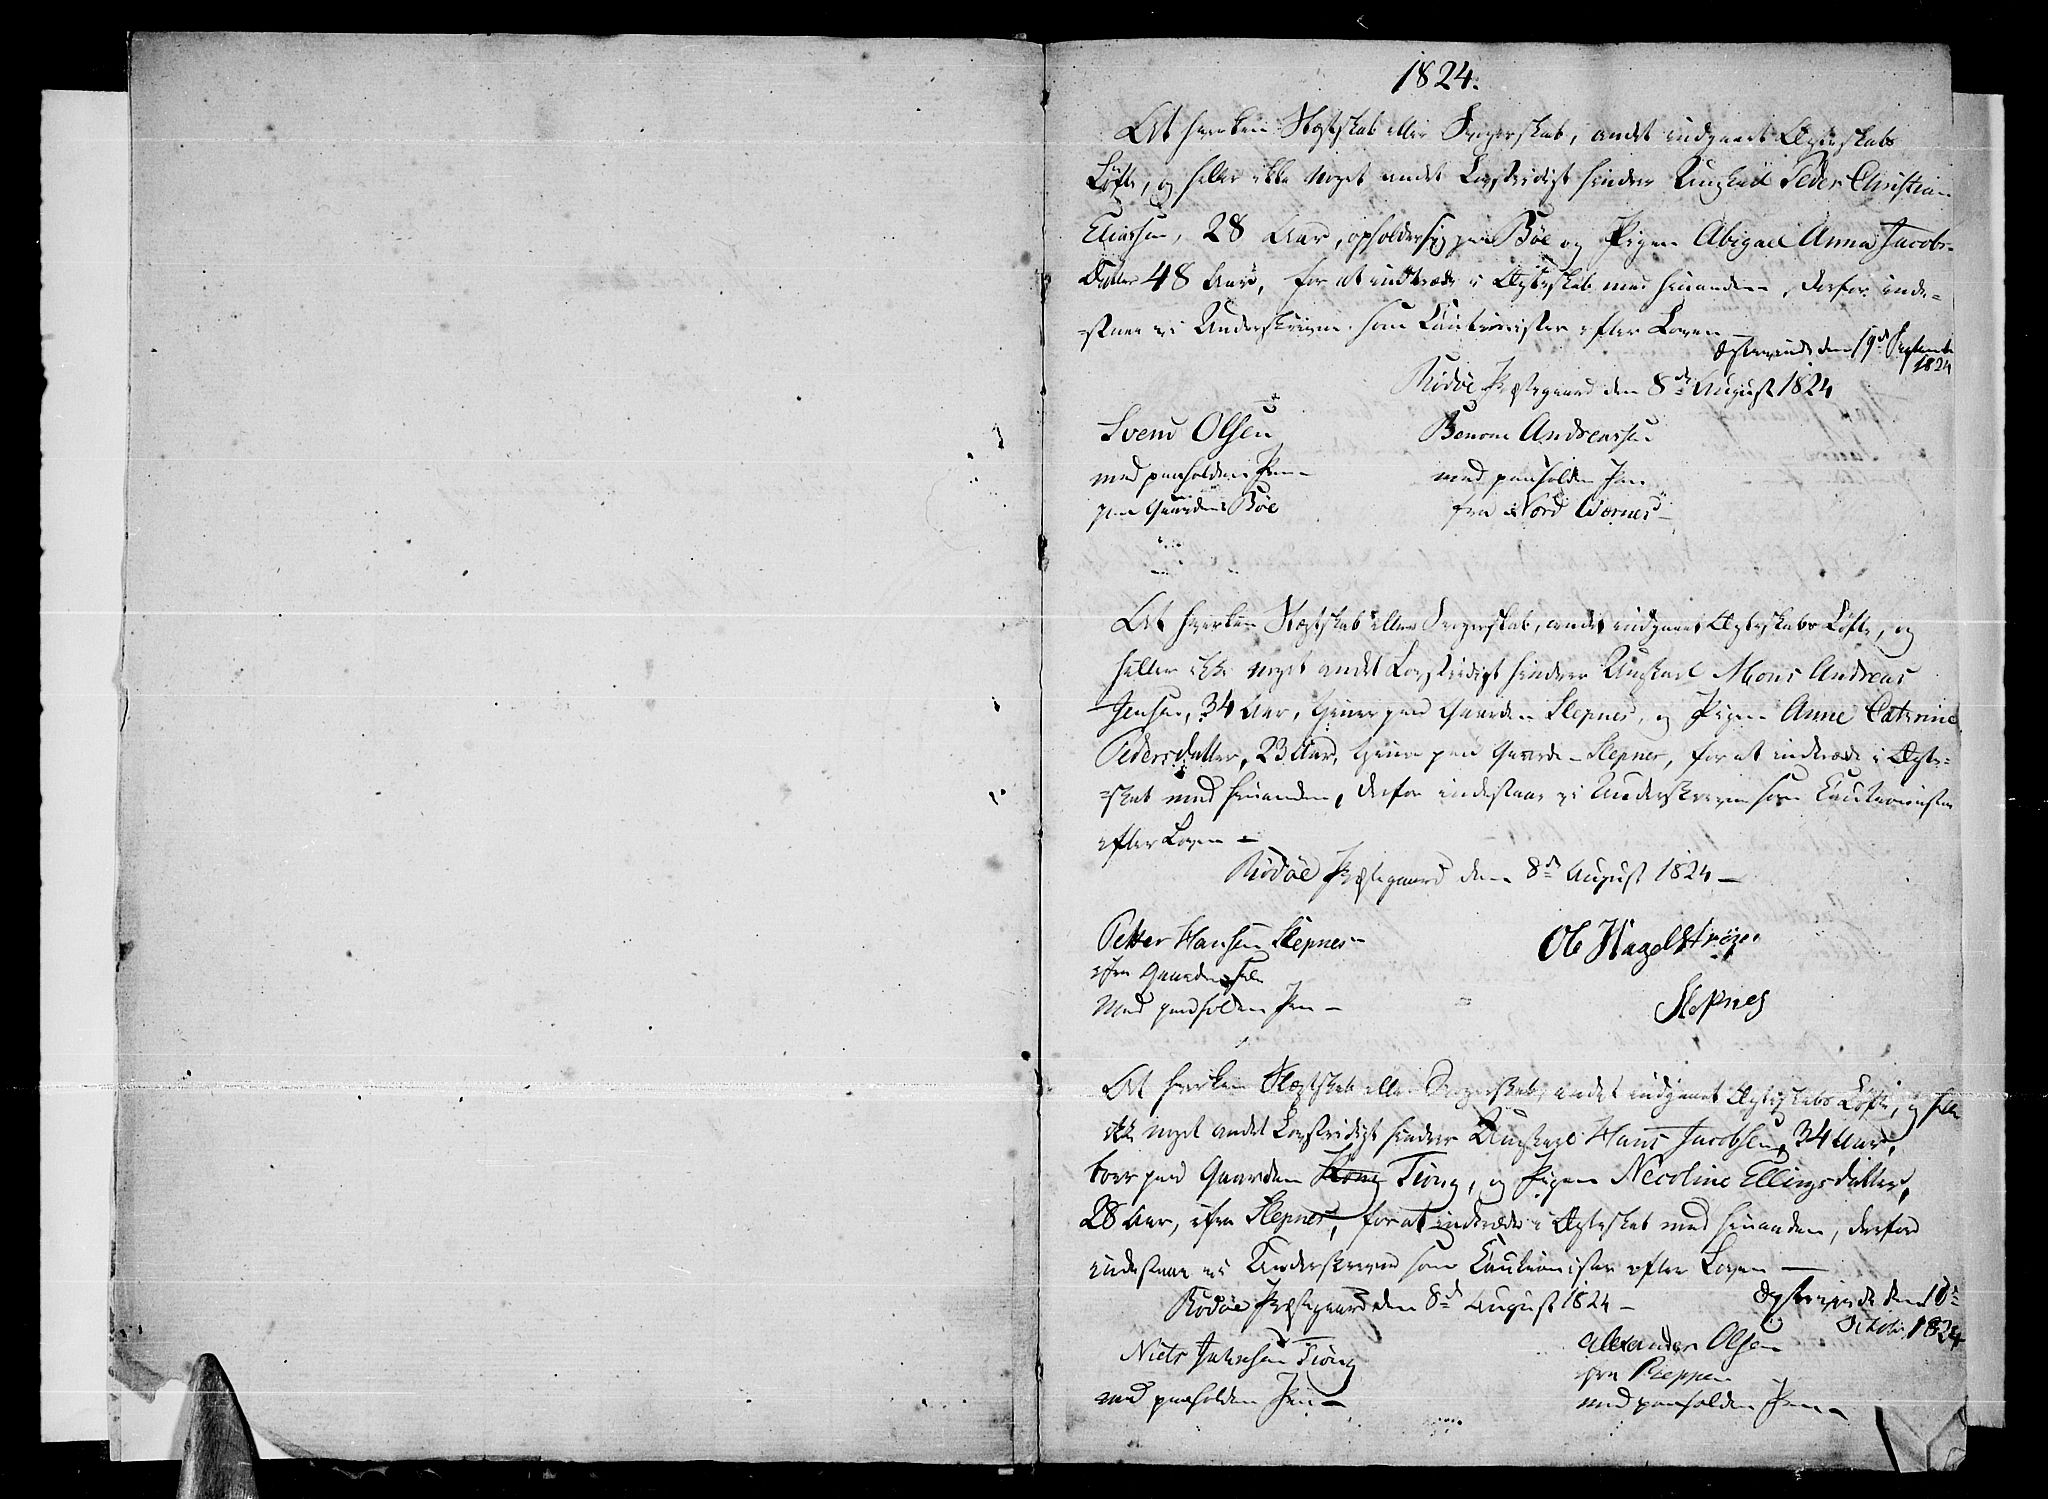 1824.
At hverken Slægtskab eller Svogerskab, andet indgaaet Ægteskabs
Løfte, og heller ikke noget andet Lovstridigt hindrer Ungkarl Peder Christian
Eliassen, 28 Aar, opholder sig paa Bøe og Pigen Abigael Anna Jacobs-
Datter 48 Aar, for at indtræde i Ægteskab med hinanden, derfor inde-
-staae vi Underskrevne som Cautionister efter Loven
Ægteviede den 19de Septembr
1824
Rödöe Præstegaard den 8de August 1824
Svend Olsen
med paaholden Pen
paa Gaarden Böe
Benone Andreassen
med paaholden Pen
fra Nord Wernes
At hverken Slægtskab eller Svogerskab, andet indgaaet Ægteskabs Løfte, og
heller ikke noget andet Lovstridigt hindrer Ungkarl Mons Andreas
Jensen, 34 Aar, tjener paa Gaarden Slepnes, og Pigen Anne Catrine
Pedersdatter, 23 Aar, tjener paa Gaarden Slepnes, for at indtræde i Ægte-
-skab med hinanden, derfor indestaae vi Underskrevne som Cautionister
efter Loven –
Rödöe Præstegaard den 8de August 1824 –
Petter Hansen Slepnes
Med paaholden Pen –
Ole Hagelstrøm
Slepnes
At hverken Slægtskab eller Svogerskab, andet indgaaet Ægteskabs Løfte, og heller
ikke noget andet Lovstridigt hindrer Ungkarl Hans Jacobsen, 34 Aar,
boer paa Gaarden Tiong, og Pigen Necoline Ellingsdatter,
28 Aar, ifra Slepnes, for at indtræde i Ægteskab med hinanden, derfor
indestaae vi Underskrevne som Cautionister efter Loven –
Rödöe Præstegaard den 8de August 1824 –
Ægteviede den 10de
Octobr 1824
Niels Johnsen Tiong
med paaholden Pen –
Alexander Olsen
fra Reppen
med paaholden Pen –